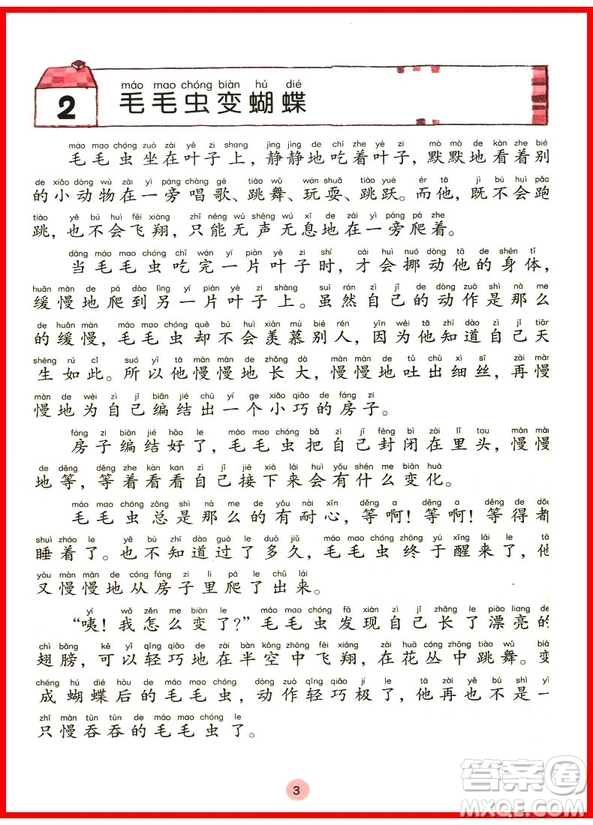 máo mao chóng biàn hú dié
2 毛毛虫变蝴蝶
máo mao chóng zuò zài yè zi shang jìng jìng de chī zhe yè zi mò mò de kàn zhe bié
毛毛虫坐在叶子上，静静地吃着叶子，默默地看着别
de xiǎo dòng wù zài yì páng chàng gē tiào wǔ wán shuǎ tiào yuè ér tā jì bú huì pǎo
的小动物在一旁唱歌、跳舞、玩耍、跳跃。而他，既不会跑
tiào yě bú huì fēi xiáng zhǐ néng wú shēng wú xī de zài yì páng pá zhe
跳，也不会飞翔，只能无声无息地在一旁爬着。
dāng máo mao chóng chī wán yí piàn yè zi shí cái huì nuó dòng tā de shēn tǐ
当毛毛虫吃完一片叶子时，才会挪动他的身体，
huǎn màn de pá dào lìng yí piàn yè zi shang suī rán zì jǐ de dòng zuò shì nà me
缓慢地爬到另一片叶子上。虽然自己的动作是那么
de huǎn màn máo mao chóng què bú huì xiàn mù bié rén yīn wèi tā zhī dào zì jǐ tiān
的缓慢，毛毛虫却不会羡慕别人，因为他知道自己天
shēng rú cǐ suǒ yǐ tā màn màn de màn màn de tǔ chū xì sī zài màn
生如此。所以他慢慢地，慢慢地吐出细丝，再慢
màn de wèi zì jǐ biān jié chū yí gè xiǎo qiǎo de fáng zi
慢地为自己编结出一个小巧的房子。
fáng zi biān jié hǎo le máo mao chóng bǎ zì jǐ fēng bì zài lǐ tou màn màn
房子编结好了，毛毛虫把自己封闭在里头，慢慢
de děng děng zhe kàn kan zì jǐ jiē xià lái huì yǒu shén me biàn huà
地等，等着看看自己接下来会有什么变化。
máo mao chóng zǒng shì nà me de yǒu nài xīn děng a děng a děng de
毛毛虫总是那么的有耐心，等啊！等啊！等得
shuì zháo le yě bù zhī dào guò le duō jiǔ máo mao chóng zhōng yú xǐng lái le
睡着了。也不知道过了多久，毛毛虫终于醒来了，
yòu màn màn de cóng fáng zi li pá le chū lái
又慢慢地从房子里爬了出来。
yí wǒ zěn me biàn le máo mao chóng fā xiàn zì jǐ zhǎng le piào liang de
“咦！我怎么变了？”毛毛虫发现自己长了漂亮的
chì bǎng kě yǐ qīng qiǎo de zài bàn kōng zhōng fēi xiáng zài huā cóng zhōng tiào wǔ
翅膀，可以轻巧地在半空中飞翔，在花丛中跳舞。变
chéng hú dié hòu de máo mao chóng dòng zuò qīng qiǎo jí le yě bú zài shì
成蝴蝶后的毛毛虫，动作轻巧极了，也不再是一
zhī màn tūn tūn de máo mao chóng le
只慢吞吞的毛毛虫了。
3
答案圈
MXQE.COM